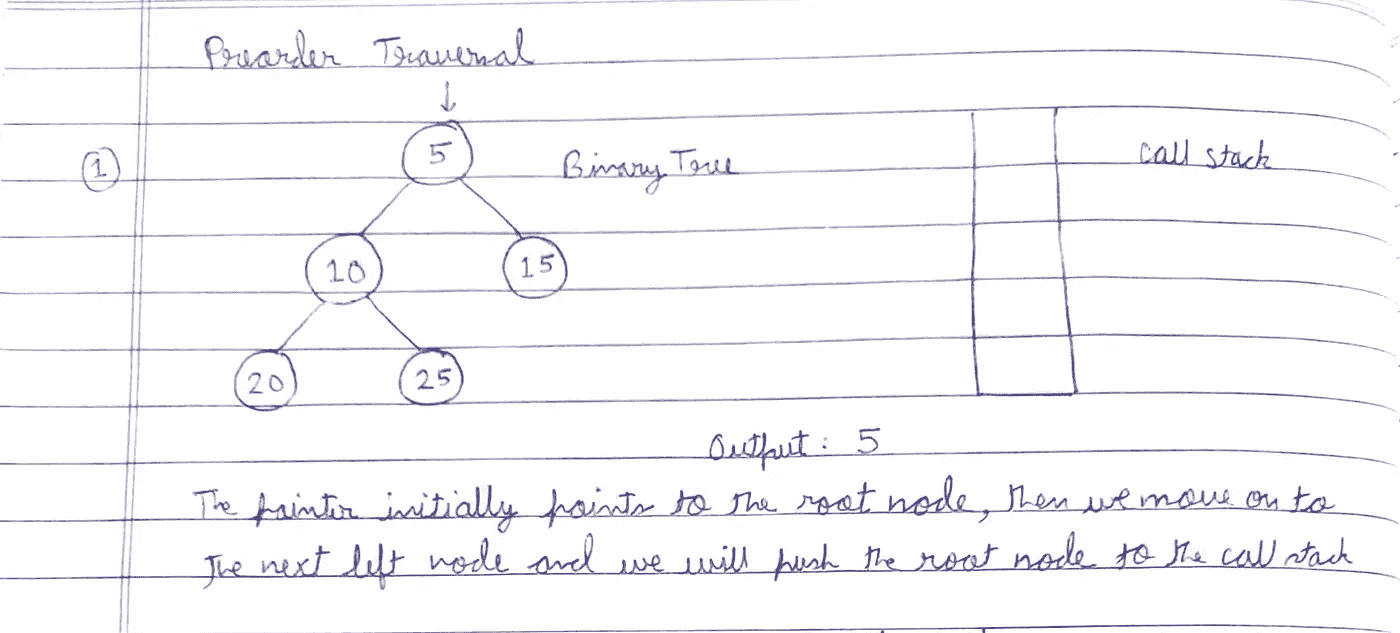 Preorder Traversal
↓
1
5
Binary Tree
call stack
10
15
20
25
Output : 5
The pointer initially points to the root node, then we move on to
the next left node and we will push the root node to the call stack